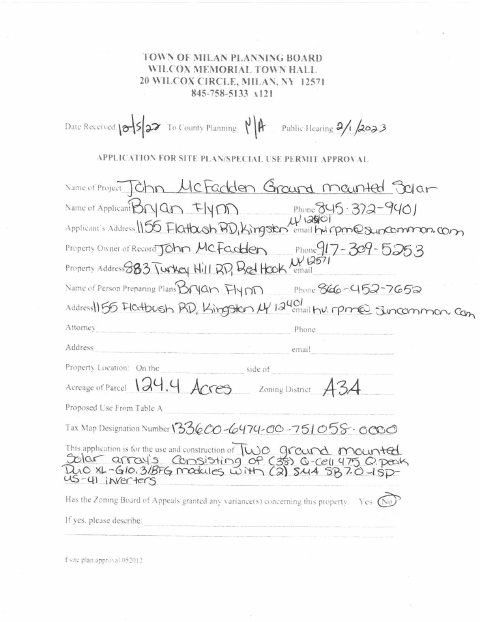 TOWN OF MILAN PLANNING BOARD
WILCOX MEMORIAL TOWN HALL
20 WILCOX CIRCLE, MILAN, NY 12571
845-758-5133 x121
Date Received 12/5/22 To County Planning N/A Public Hearing 2/1/2023
APPLICATION FOR SITE PLAN/SPECIAL USE PERMIT APPROVAL
Name of Project John McFadden Ground mounted Solar
Name of Applicant Bryan Flynn Phone 845-372-9401
Applicant's Address 1155 Flatbush RD, Kingston NY 12401 email hv.rpm@suncommon.com
Property Owner of Record John McFadden Phone 917-309-5253
Property Address 883 Turkey Hill RD, Red Hook NY 12571 email
Name of Person Preparing Plans Bryan Flynn Phone 866-452-7652
Address 1155 Flatbush RD, Kingston NY 12401 email hv.rpm@suncommon.com
Attorney Phone
Address email
Property Location: On the side of
Acreage of Parcel 124.4 Acres Zoning District A3A
Proposed Use From Table A
Tax Map Designation Number 133600-6474-00-751058-0000
This application is for the use and construction of Two ground mounted
Solar arrays consisting of (38) Q-Cell 475 Q.peak
Duo XL-G10.3/BFG modules with (2) SMA SB7.0-1SP-
US-41 inverters
Has the Zoning Board of Appeals granted any variance(s) concerning this property Yes No
If yes, please describe:
f/site plan approval 052012